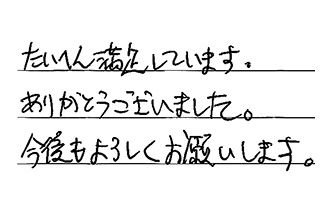 たいへん満足しています。
ありがとうございました。
今後もよろしくお願いします。